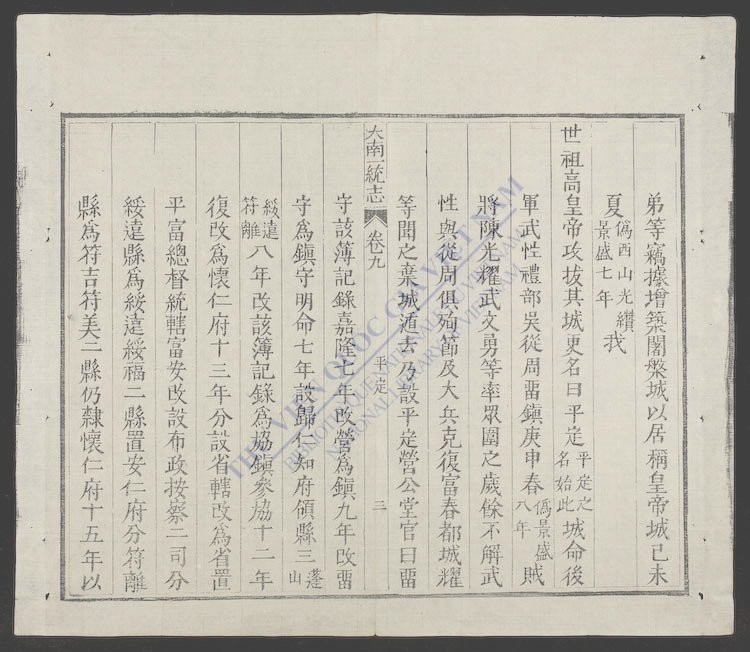 弟等竊據增築闍槃城以居稱皇帝城己未
夏偽西山光纘景盛七年我
世祖高皇帝攻拔其城更名曰平定平定之名始此城命後
軍武性禮部吳從周畱鎮庚申春偽景盛八年賊
將陳光耀武文勇等率眾圍之歲餘不解武
性與從周俱殉節及大兵克復富春都城耀
等聞之棄城遁去乃設平定營公堂官曰畱
大南一統志 卷九 平定 三
守該簿記錄嘉隆七年改營為鎮九年改畱
守為鎮守明命七年設歸仁知府領縣三蓬山
綏遠符離八年改該簿記錄為協鎮參協十二年
復改為懷仁府十三年分設省轄改為省置
平富總督統轄富安改設布政按察二司分
綏遠縣為綏遠綏福二縣置安仁府分符離
縣為符吉符美二縣仍隸懷仁府十五年以
THƯ VIỆN QUỐC GIA VIỆT NAM
BIBLIOTHEQUE NATIONALE DU VIETNAM
NATIONAL LIBRARY OF VIETNAM